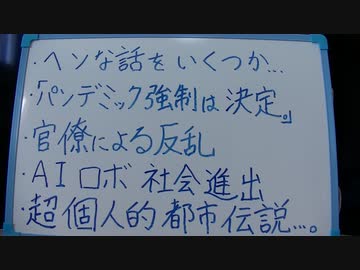 ・ヘンな話をいくつか...
・「パンデミック強制は決定。」
・官僚による反乱
・AIロボ社会進出
・超個人的都市伝説...。